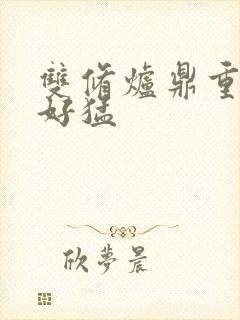 雙脩爐鼎重
好猛
欣夢晨